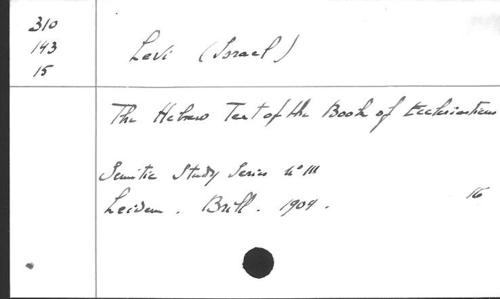 310
143
15
Levi (Israel)
The Hebrew Text of the Book of Ecclesiasticus
Semitic Study Series n° III
Leiden. Brill. 1904.
16